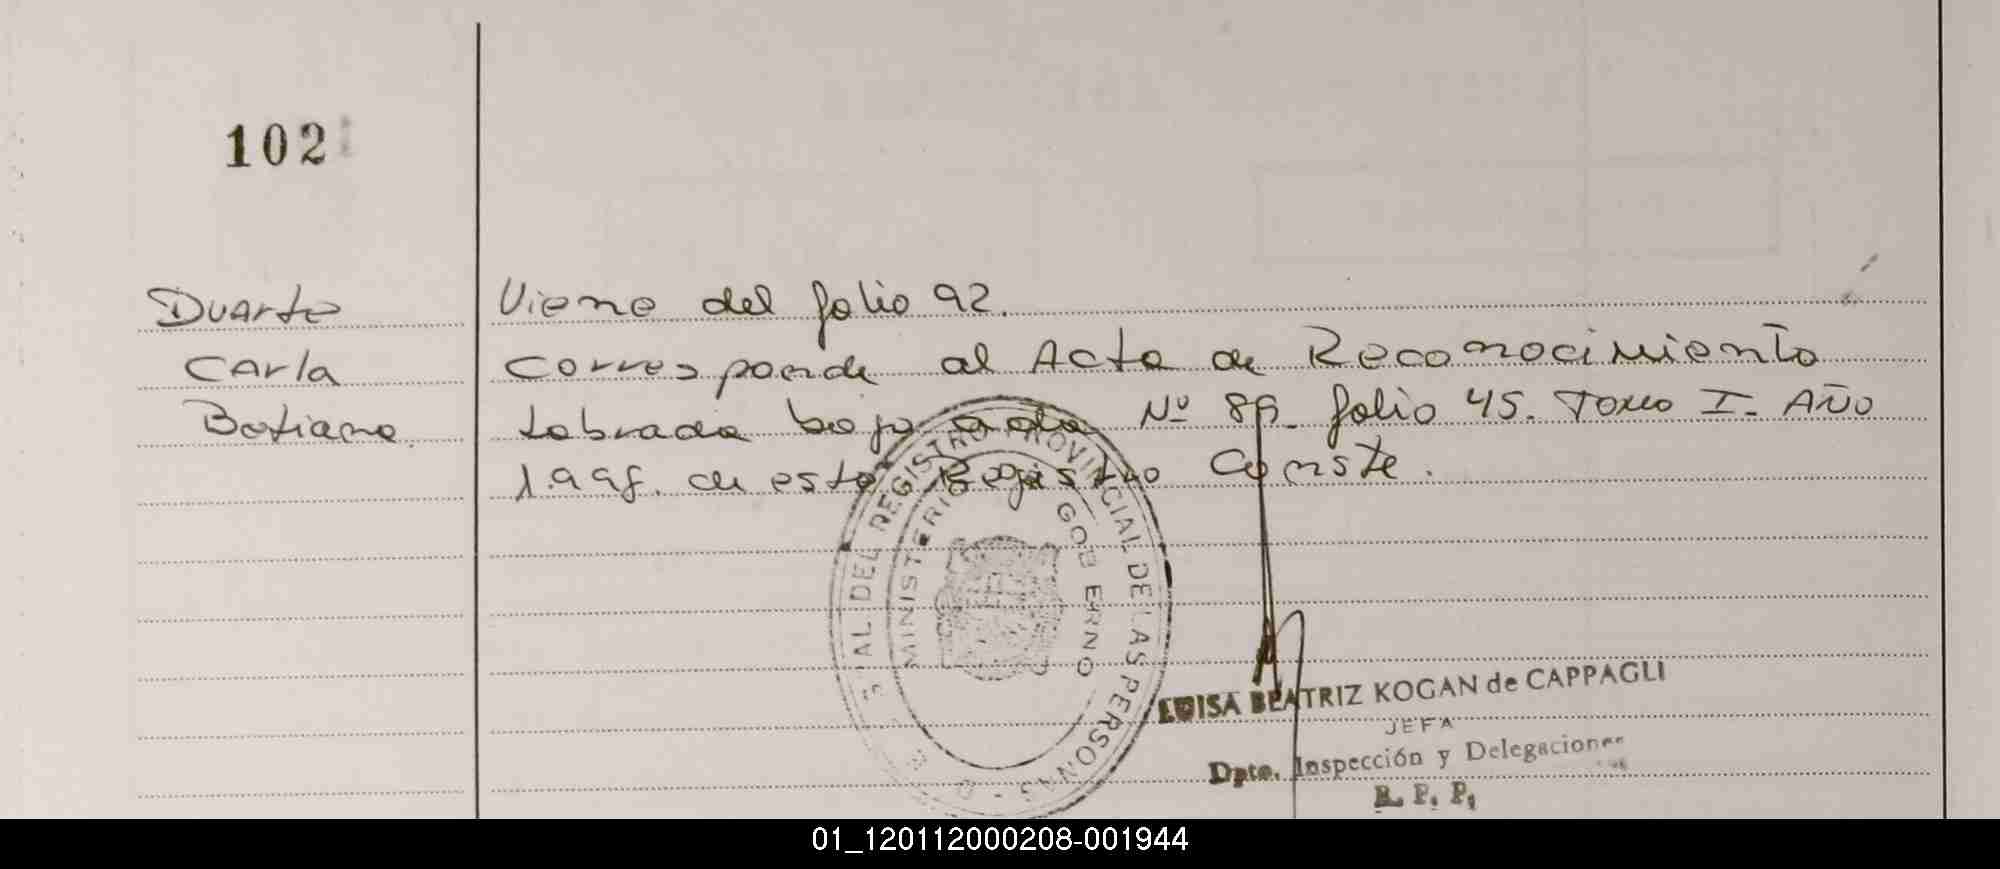 102
Duarte
Carla
Botiana
Viene del folio 92.
Corresponde al Acta de Reconocimiento
Labrada bajo acta Nº 89 folio 45. Tomo I. Año
1.998. de este Registro Conste.
DEL REGISTRO PROVINCIAL DE LAS PERSONAS
MINISTERIO GOBIERNO
LUISA BEATRIZ KOGAN de CAPPAGLI
JEFA
Dpto. Inspección y Delegaciones
R. P. P.
01_120112000208-001944